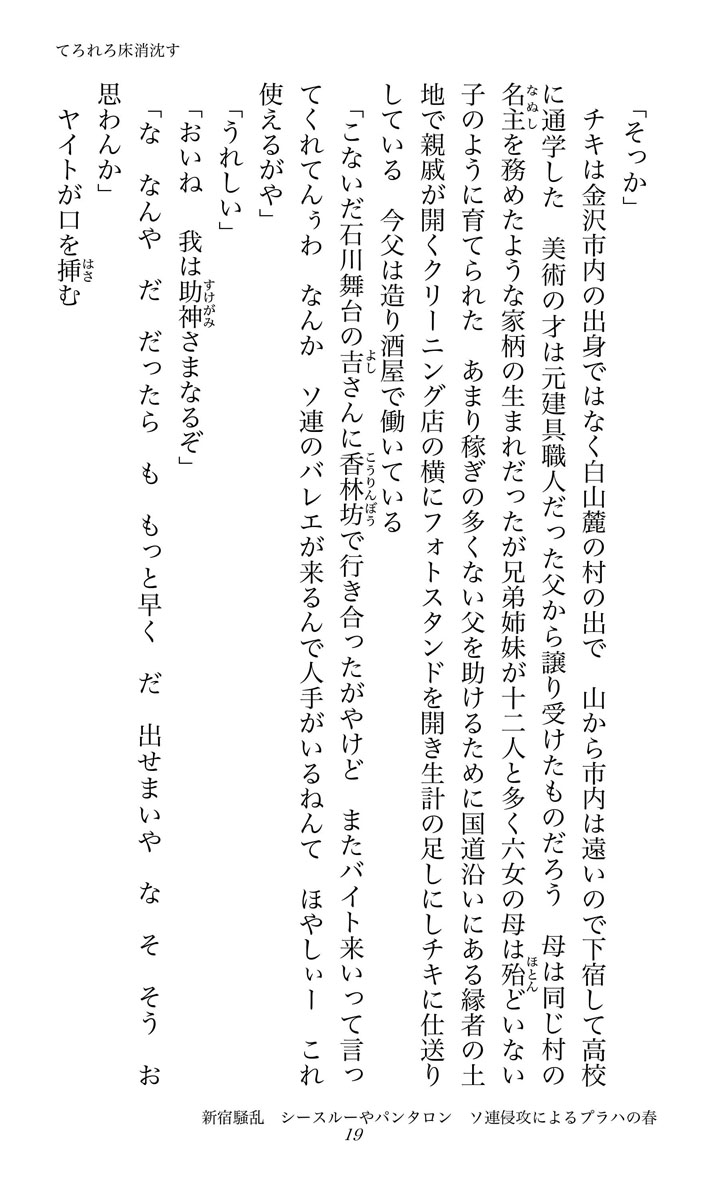 てろれろ床消沈す
「そっか」
　チキは金沢市内の出身ではなく白山麓の村の出で　山から市内は遠いので下宿して高校
に通学した　美術の才は元建具職人だった父から譲り受けたものだろう　母は同じ村の
名主を務めたような家柄の生まれだったが兄弟姉妹が十二人と多く六女の母は殆どいない
なぬし
ほとん
子のように育てられた　あまり稼ぎの多くない父を助けるために国道沿いにある縁者の土
地で親戚が開くクリーニング店の横にフォトスタンドを開き生計の足しにしチキに仕送り
している　今父は造り酒屋で働いている
「こないだ石川舞台の吉さんに香林坊で行き合ったがやけど　またバイト来いって言っ
よし
こうりんぼう
てくれてんぅわ　なんか　ソ連のバレエが来るんで人手がいるねんて　ほやしぃー　これ
使えるがや」
「うれしい」
「おいね　我は助神さまなるぞ」
すけがみ
「な　なんや　だ　だったら　も　もっと早く　だ　出せまいや　な　そ　そう　お
思わんか」
　ヤイトが口を挿む
はさ
新宿騒乱　シースルーやパンタロン　ソ連侵攻によるプラハの春
19